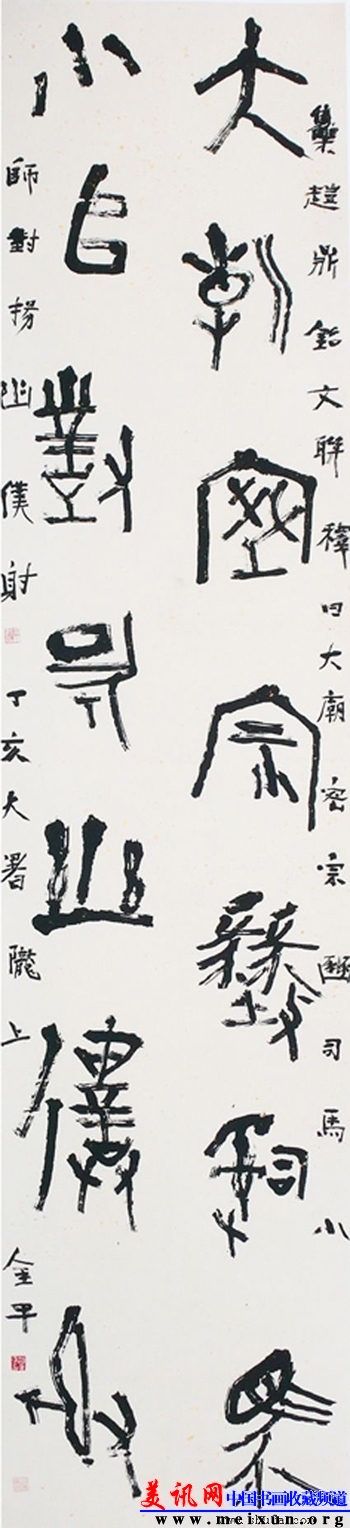 集趞鼎銘文聯釋曰大廟密宗豳司馬小
大朝密宗豳司馬
小𠂤對揚幽僕射
師對揚幽僕射 丁亥大暑隴上 金平
美讯网 中国书画收藏频道
www.meixun.org